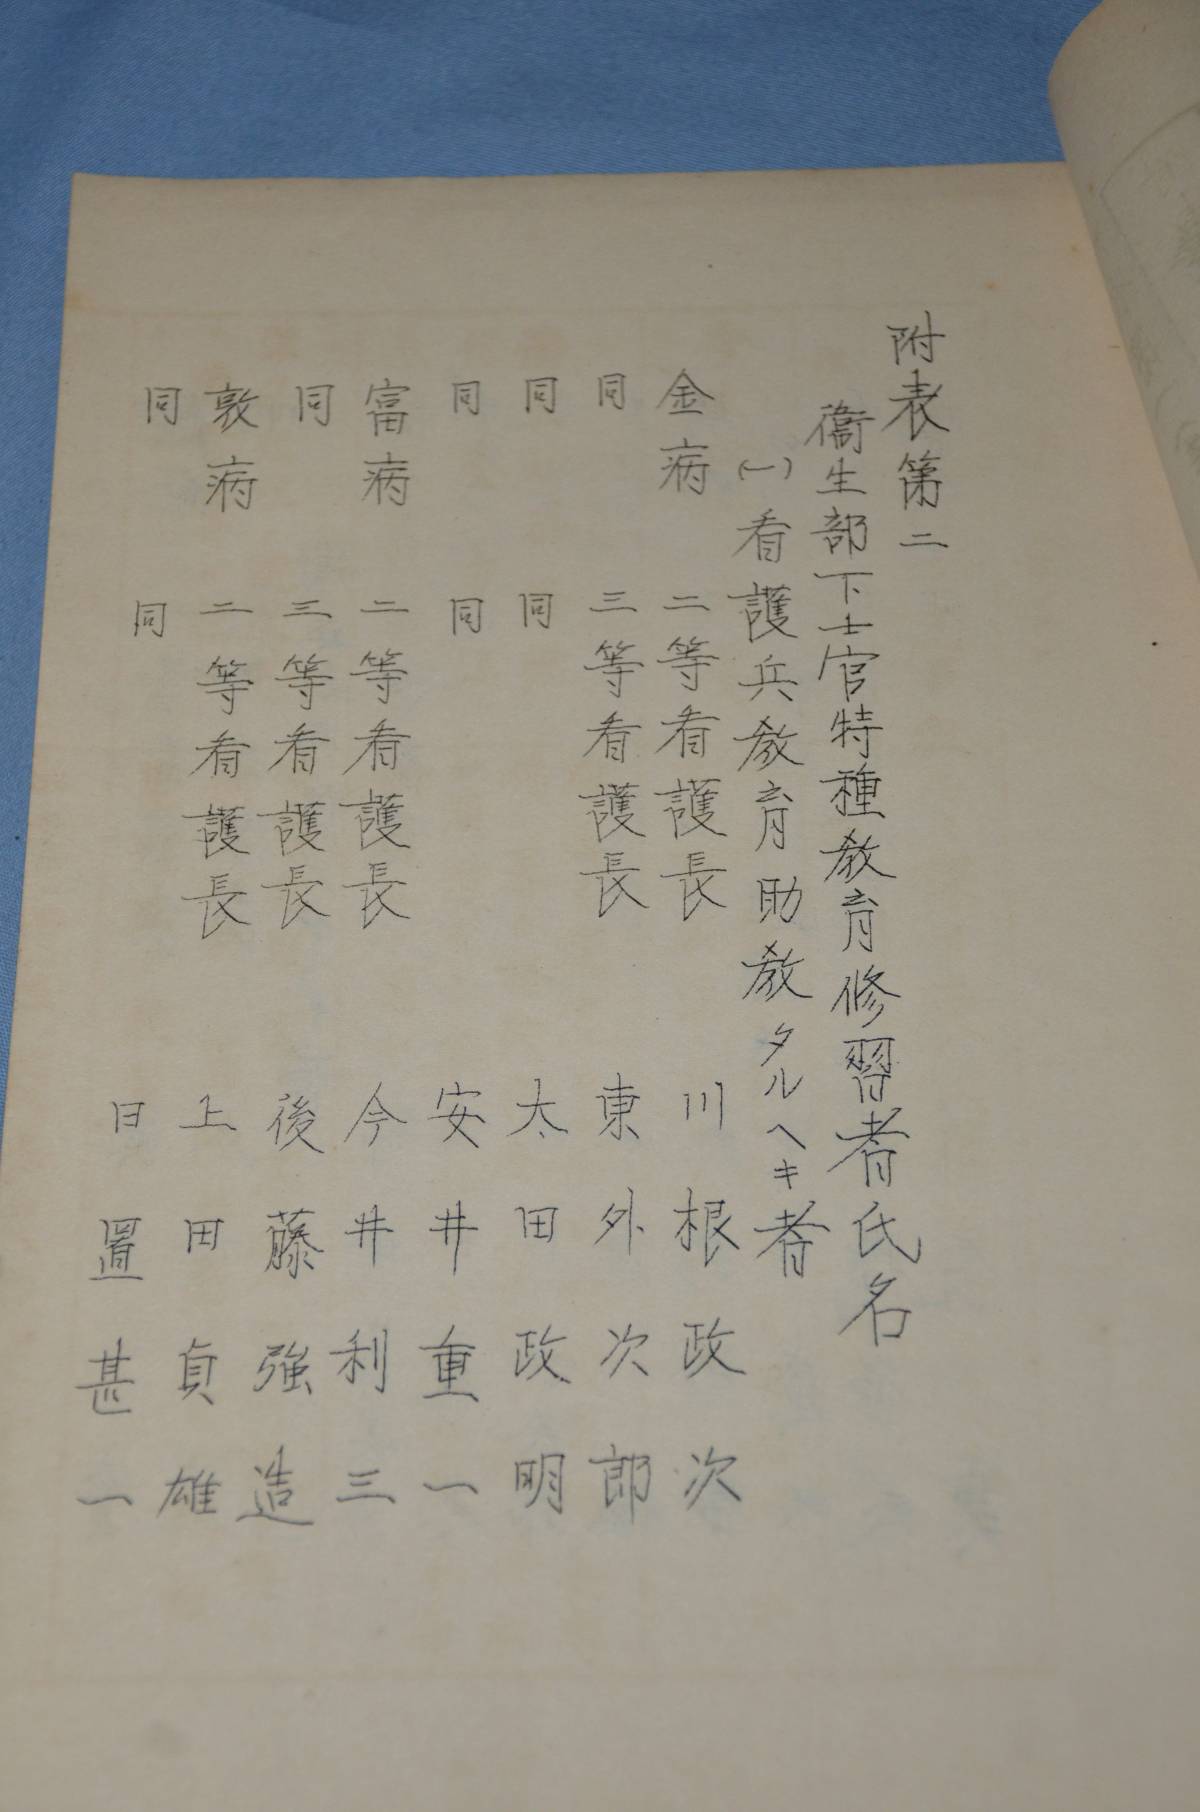 附表第二
衞生部下士官特種教育修習者氏名
(一)看護兵教育助教タルヘキ者
金病 二等看護長 川根政次
同 三等看護長 東外次郎
同 同 太田政明
同 同 安井重一
富病 二等看護長 今井利三
同 三等看護長 後藤強造
敦病 二等看護長 上田貞雄
同 同 日置甚一